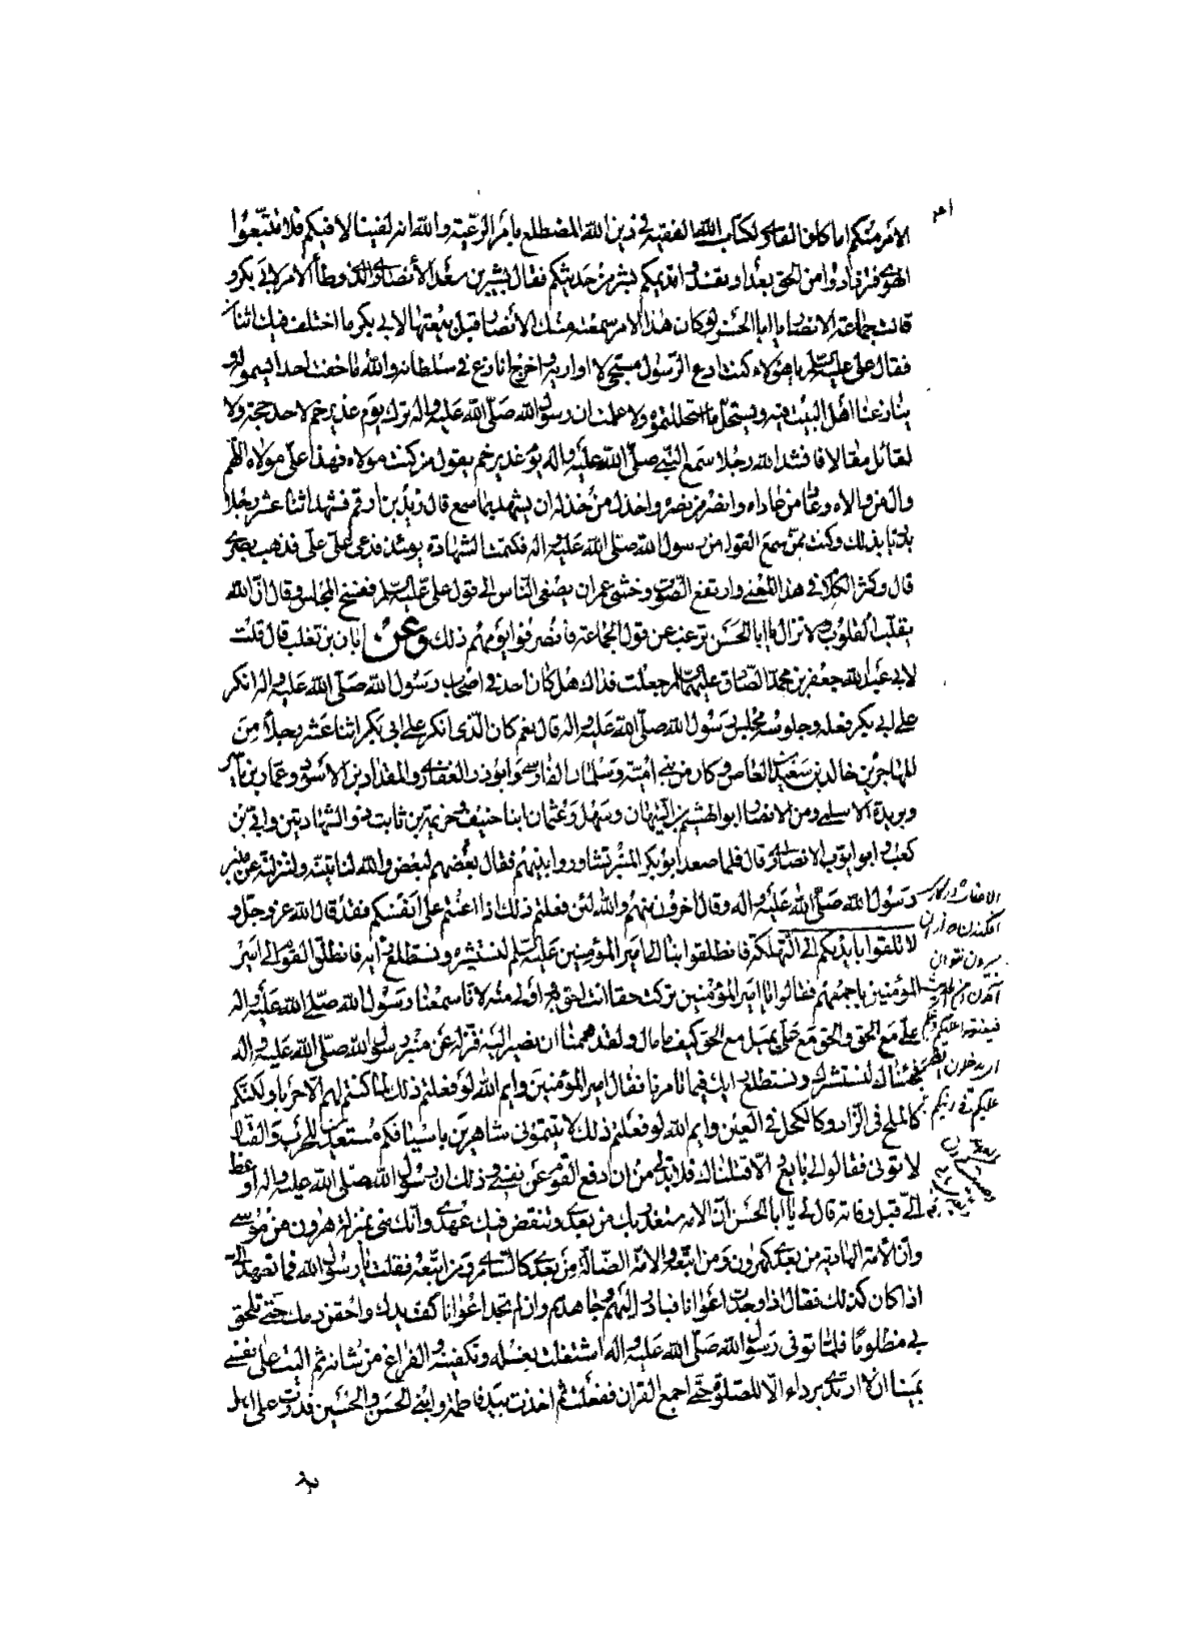 الامر منكم اما كان القارئ لكتاب الله الفقيه في دين الله المضطلع بامر الرعية والله انه لفينا لا فيكم فلا تتبعوا
الهوى فتزدادوا من الحق بعدا وتفسدوا قديمكم بشر من حديثكم فقال بشير بن سعد الانصاري الذي وطأ الامر لابي بكر و
قالت جماعة الانصار يا ابا الحسن لو كان هذا الامر سمعته منك الانصار قبل بيعتها لابي بكر ما اختلف فيك اثنان
فقال علي عليه السلم يا هؤلاء كنت ادع الرسول مسجى لا اواريه و اخرج انازع في سلطانه والله ما خفت احدا يسمو له و
ينازعنا اهل البيت فيه ويستحل ما استحللتموه ولا علمت ان رسول الله صلى الله عليه واله ترك يوم غدير خم لاحد حجة ولا
لقائل مقالا فانشد الله رجلا سمع النبي صلى الله عليه واله يوم غدير خم يقول من كنت مولاه فهذا علي مولاه اللهم
وال من والاه وعاد من عاداه وانصر من نصره واخذل من خذله ان يشهد بما سمع قال زيد بن ارقم فشهد اثنا عشر رجلا
بدريا بذلك وكنت ممن سمع القول من رسول الله صلى الله عليه واله فكتمت الشهادة يومئذ فدعى علي علي فذهب بصري
قال وكثر الكلام في هذا المعنى وارتفع الصوت وخشي عمر ان يصغى الناس الى قول علي عليه السلم ففسخ المجلس وقال ان الله
يقلب القلوب ولا تزال يا ابا الحسن ترغب عن قول الجماعة فانصرفوا يومهم ذلك وعن ابان بن تغلب قال قلت
لابي عبد الله جعفر بن محمد الصادق عليهما السلم جعلت فداك هل كان احد في اصحاب رسول الله صلى الله عليه واله انكر
على ابي بكر فعله وجلوسه مجلس رسول الله صلى الله عليه واله قال نعم كان الذي انكر على ابي بكر اثنا عشر رجلا من
المهاجرين خالد بن سعيد بن العاص وكان من بني امية وسلمان الفارسي وابوذر الغفاري والمقداد بن الاسود وعمار بن ياسر
وبريدة الاسلمي ومن الانصار ابو الهيثم بن التيهان وسهل وعثمان ابنا حنيف وخزيمة بن ثابت ذو الشهادتين وابي بن
كعب و ابو ايوب الانصاري قال فلما صعد ابو بكر المنبر تشاوروا بينهم فقال بعضهم لبعض والله لنأتينه ولننزلنه عن منبر
رسول الله صلى الله عليه واله وقال اخرون منهم والله لئن فعلتم ذلك اذا اعنتم على انفسكم فقد قال الله عز وجل و
لا تلقوا بايديكم الى التهلكة فانطلقوا بنا الى امير المؤمنين عليه السلم لنستشيره ونستطلع رأيه فانطلق القوم الى امير
المؤمنين باجمعهم فقالوا يا امير المؤمنين تركت حقا انت احق به و اولى منه لانا سمعنا رسول الله صلى الله عليه واله
علي مع الحق والحق مع علي يميل مع الحق كيف ما مال ولقد هممنا ان نصير اليه فننزله عن منبر رسول الله صلى الله عليه واله
فجئناك لنستشرك ونستطلع رايك فيما تامرنا فقال امير المؤمنين وايم الله لو فعلتم ذلك لما كنتم لهم الا حربا ولكنكم
كالملح في الزاد وكالكحل في العين وايم الله لو فعلتم ذلك لاتيتموني شاهرين باسيافكم مستعدين للحرب والقتال
لاتوني فقالوا لي بايع والا قتلناك فلا بد لي من ان ادفع القوم عن نفسي وذلك ان رسول الله صلى الله عليه واله اوعظ
الي قبل وفاته قال لي يا ابا الحسن ان الامة ستغدر بك من بعدي وتنقض فيك عهدي وانك مني بمنزلة هرون من موسى
وان الامة الهادية من بعدي كهرون ومن اتبعه والامة الضالة من بعدي كالسامري ومن اتبعه فقلت يا رسول الله فما تعهد الي
اذا كان كذلك فقال اذا وجدت اعوانا فبادر اليهم وجاهدهم وان لم تجد اعوانا كف يدك واحقن دمك حتى تلحق
بي مظلوما فلما توفى رسول الله صلى الله عليه واله اشتغلت بغسله وتكفينه والفراغ من شانه ثم اليت على نفسي
يمينا ان لا ارتدي برداء الا للصلوة حتى اجمع القران ففعلت ثم اخذت بيد فاطمة وابني الحسن والحسين فدرت على اهل